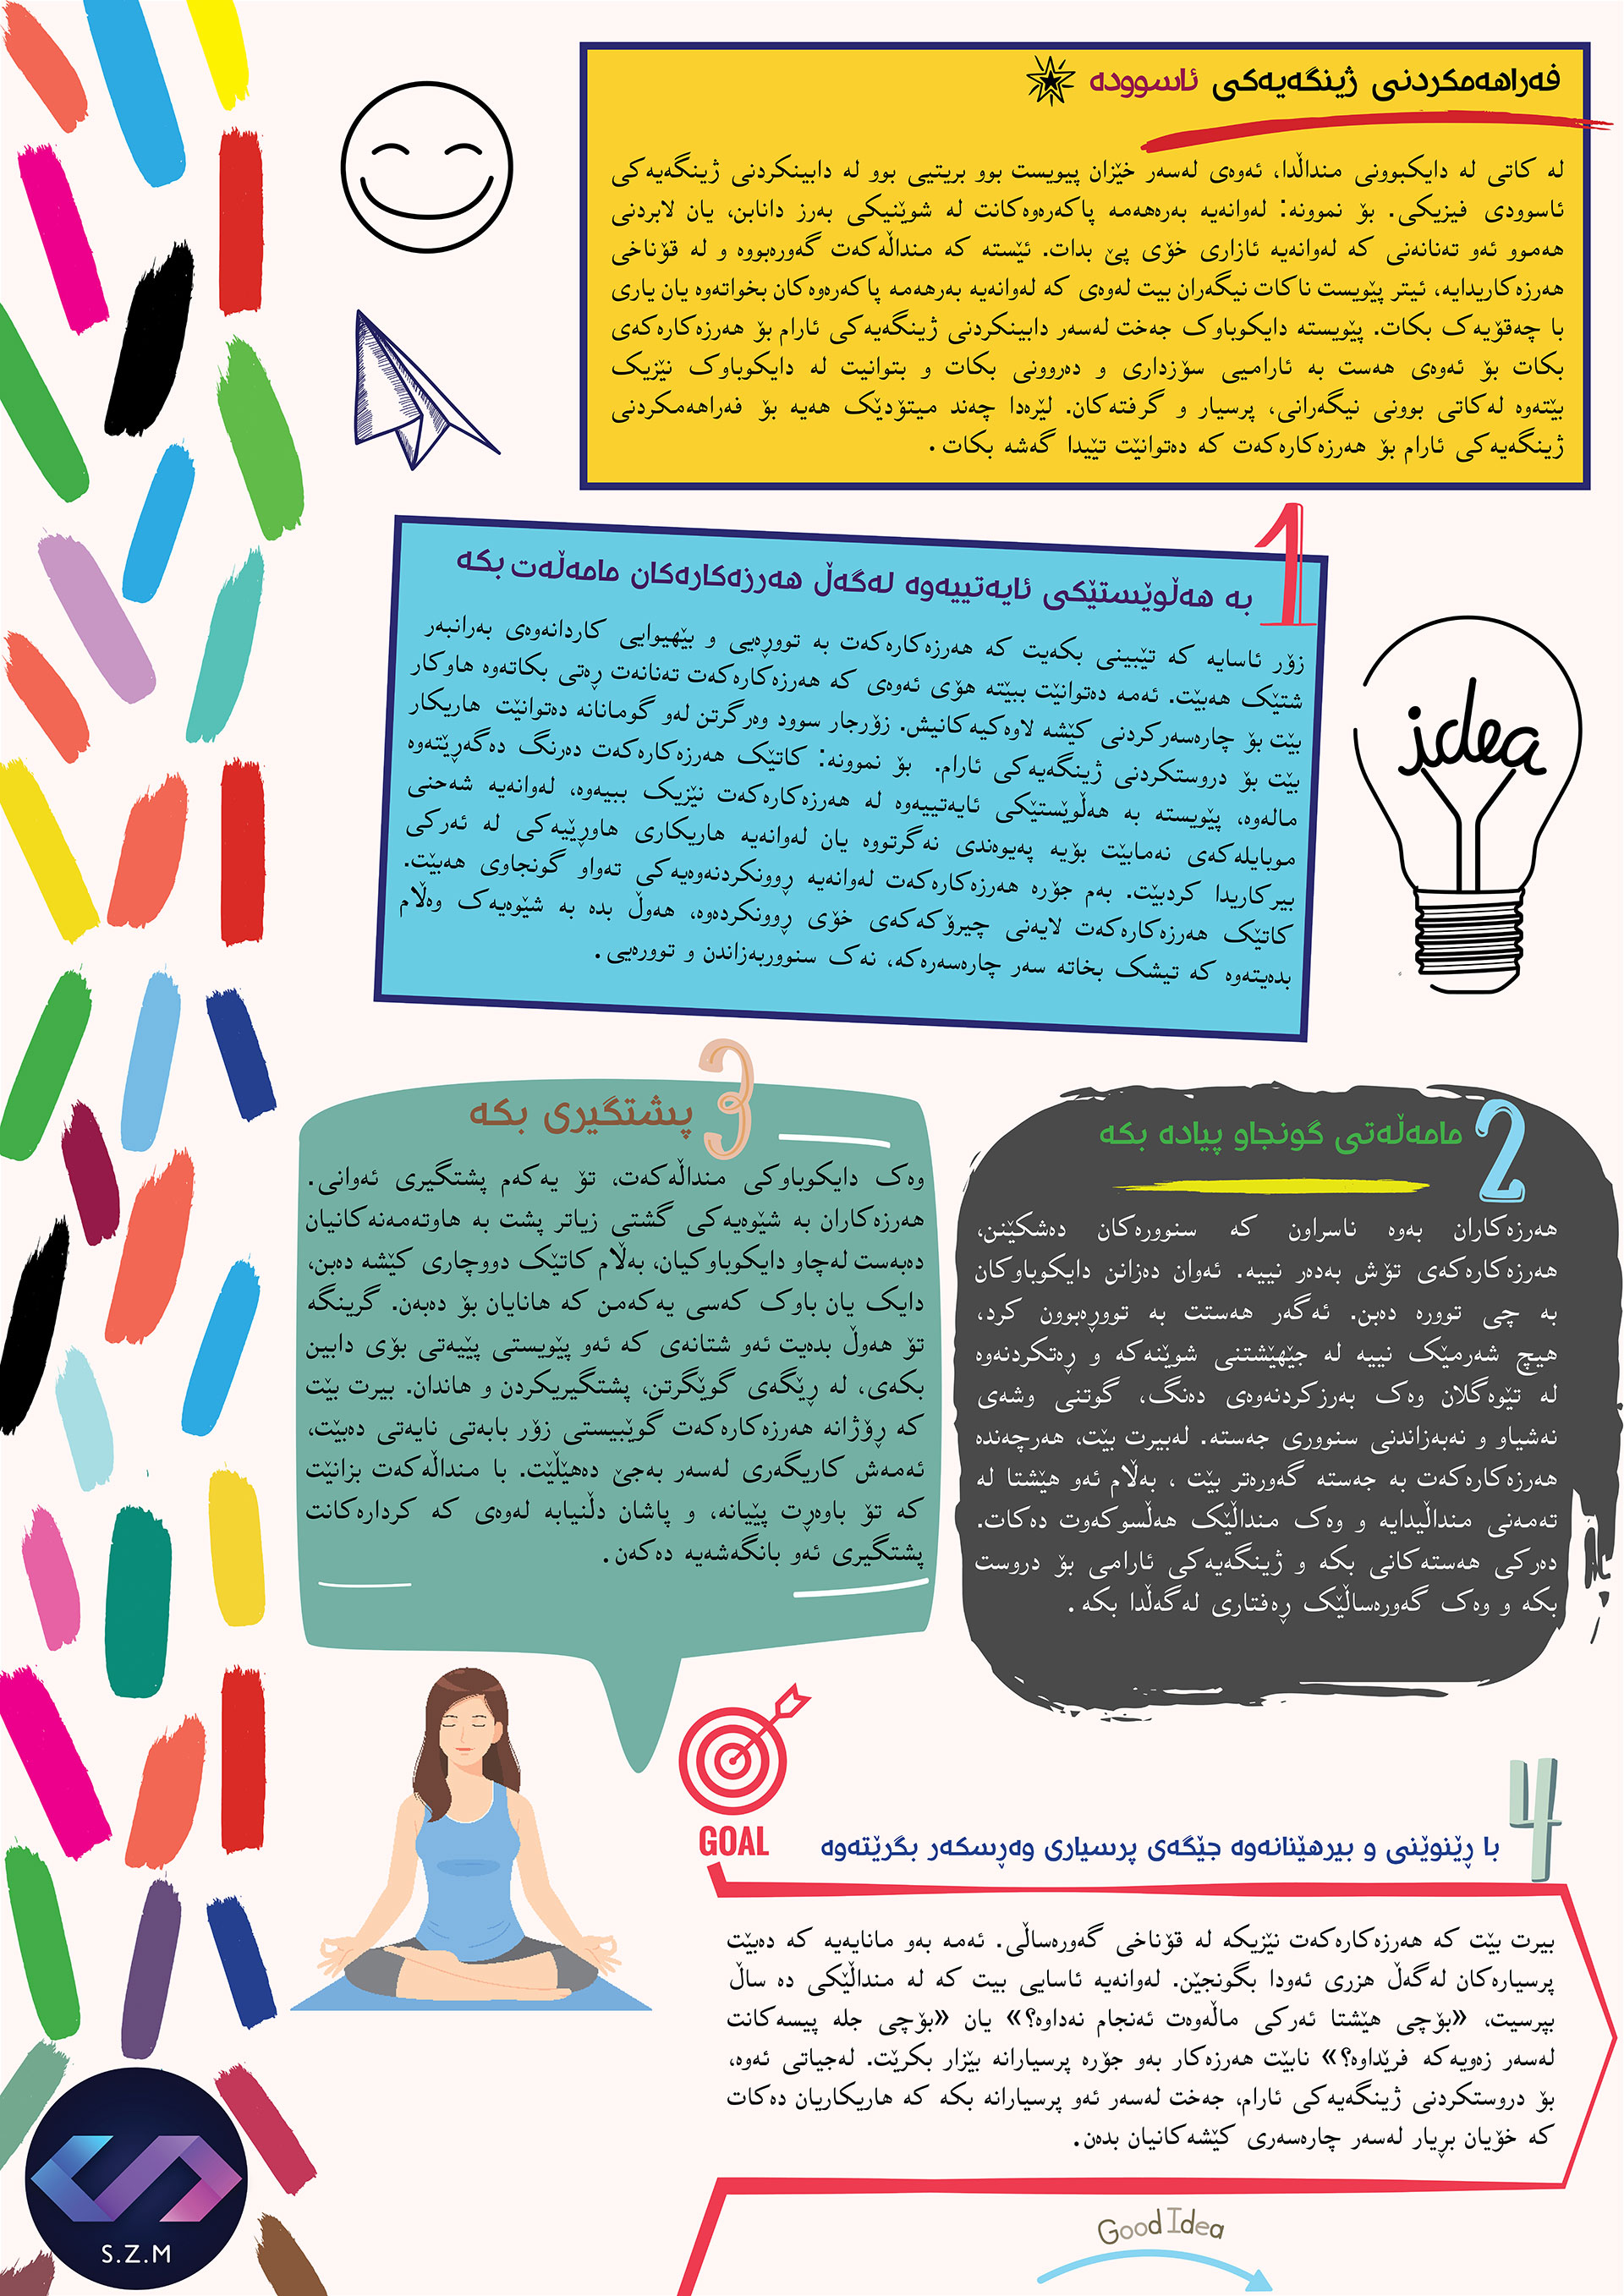 فەراهەمکردنی ژینگەیەکی ئاسوودە
لە کاتی لە دایکبوونی منداڵدا، ئەوەی لەسەر خێزان پیویست بوو بریتیی بوو لە دابینکردنی ژینگەیەکی
ئاسوودی فیزیکی. بۆ نموونە: لەوانەیە بەرەهەمە پاکەرەوەکانت لە شوێنیکی بەرز دانابن، یان لابردنی
هەموو ئەو تەنانەنی کە لەوانەیە ئازاری خۆی پێ بدات. ئێستە کە منداڵەکەت گەورەبووە و لە قۆناخی
هەرزەکاریدایە، ئیتر پێویست ناکات نیگەران بیت لەوەی کە لەوانەیە بەرهەمە پاکەرەوەکان بخواتەوە یان یاری
با چەقۆیەک بکات. پێویستە دایکوباوک جەخت لەسەر دابینکردنی ژینگەیەکی ئارام بۆ هەرزەکارەکەی
بکات بۆ ئەوەی هەست بە ئارامیی سۆزداری و دەروونی بکات و بتوانیت لە دایکوباوک نێزیک
بێتەوە لەکاتی بوونی نیگەرانی، پرسیار و گرفتەکان. لێرەدا چەند میتۆدێک هەیە بۆ فەراهەمکردنی
ژینگەیەکی ئارام بۆ هەرزەکارەکەت کە دەتوانێت تێیدا گەشە بکات.
1
بە هەڵوێستێکی ئایەتییەوە لەگەڵ هەرزەکارەکان مامەڵەت بکە
زۆر ئاسایە کە تێبینی بکەیت کە هەرزەکارەکەت بە توورەیی و بێهیوایی کاردانەوەی بەرانبەر
شتێک هەبێت. ئەمە دەتوانێت ببێتە هۆی ئەوەی کە هەرزەکارەکەت تەنانەت ڕەتی بکاتەوە هاوکار
بێت بۆ چارەسەرکردنی کێشە لاوەکیەکانیش. زۆرجار سوود وەرگرتن لەو گومانانە دەتوانێت هاریکار
بێت بۆ دروستکردنی ژینگەیەکی ئارام. بۆ نموونە: کاتێک هەرزەکارەکەت دەرنگ دەگەڕێتەوە
مالەوە، پێویستە بە هەڵوێستێکی ئایەتییەوە لە هەرزەکارەکەت نێزیک ببیەوە، لەوانەیە شەحنی
موبایلەکەی نەمابێت بۆیە پەیوەندی نەگرتووە یان لەوانەیە هاریکاری هاوڕێیەکی لە ئەرکی
بیرکاریدا کردبێت. بەم جۆرە هەرزەکارەکەت لەوانەیە ڕوونکردنەوەیەکی تەواو گونجاوی هەبێت.
کاتێک هەرزەکارەکەت لایەنی چیرۆکەکەی خۆی ڕوونکردەوە، هەوڵ بدە بە شێوەیەک وەڵام
بدەیتەوە کە تیشک بخاتە سەر چارەسەرەکە، نەک سنووربەزاندن و توورەیی.
idea
2
مامەڵەتی گونجاو پیادە بکە
هەرزەکاران بەوە ناسراون کە سنوورەکان دەشکێنن،
هەرزەکارەکەی تۆش بەدەر نییە. ئەوان دەزانن دایکوباوکان
بە چی توورە دەبن. ئەگەر هەستت بە توورەبوون کرد،
هیچ شەرمێک نییە لە جێهێشتنی شوێنەکە و ڕەتکردنەوە
لە تێوەگلان وەک بەرزکردنەوەی دەنگ، گوتنی وشەی
نەشیاو و نەبەزاندنی سنووری جەستە. لەبیرت بێت، هەرچەندە
هەرزەکارەکەت بە جەستە گەورەتر بێت ، بەڵام ئەو هێشتا لە
تەمەنی منداڵیدایە و وەک منداڵێک هەڵسوکەوت دەکات.
دەرکی هەستەکانی بکە و ژینگەیەکی ئارامی بۆ دروست
بکە و وەک گەورەساڵێک ڕەفتاری لەگەڵدا بکە.
3
پشتگیری بکە
وەک دایکوباوکی منداڵەکەت، تۆ یەکەم پشتگیری ئەوانی.
هەرزەکاران بە شێوەیەکی گشتی زیاتر پشت بە هاوتەمەنەکانیان
دەبەست لەچاو دایکوباوکیان، بەڵام کاتێک دووچاری کێشە دەبن،
دایک یان باوک کەسی یەکەمن کە هانایان بۆ دەبەن. گرینگە
تۆ هەوڵ بدەیت ئەو شتانەی کە ئەو پێویستی پێیەتی بۆی دابین
بکەی، لە ڕێگەی گوێگرتن، پشتگیریکردن و هاندان. بیرت بێت
کە ڕۆژانە هەرزەکارەکەت گوێبیستی زۆر بابەتی نایەتی دەبێت،
ئەمەش کاریگەری لەسەر بەجێ دەهێڵێت. با منداڵەکەت بزانێت
کە تۆ باوەڕت پێیانە، و پاشان دڵنیابە لەوەی کە کردارەکانت
پشتگیری ئەو بانگەشەیە دەکەن.
GOAL
4
با ڕێنوێنی و بیرهێنانەوە جێگەی پرسیاری وەڕسکەر بگرێتەوە
بیرت بێت کە هەرزەکارەکەت نێزیکە لە قۆناخی گەورەساڵی. ئەمە بەو مانایەیە کە دەبێت
پرسیارەکان لەگەڵ هزری ئەودا بگونجێن. لەوانەیە ئاسایی بیت کە لە منداڵێکی دە ساڵ
بپرسیت، «بۆچی هێشتا ئەرکی ماڵەوەت ئەنجام نەداوە؟» یان «بۆچی جلە پیسەکانت
لەسەر زەویەکە فرێداوە؟» نابێت هەرزەکار بەو جۆرە پرسیارانە بێزار بکرێت. لەجیاتی ئەوە،
بۆ دروستکردنی ژینگەیەکی ئارام، جەخت لەسەر ئەو پرسیارانە بکە کە هاریکاریان دەکات
کە خۆیان بڕیار لەسەر چارەسەری کێشەکانیان بدەن.
Good Idea
S.Z.M